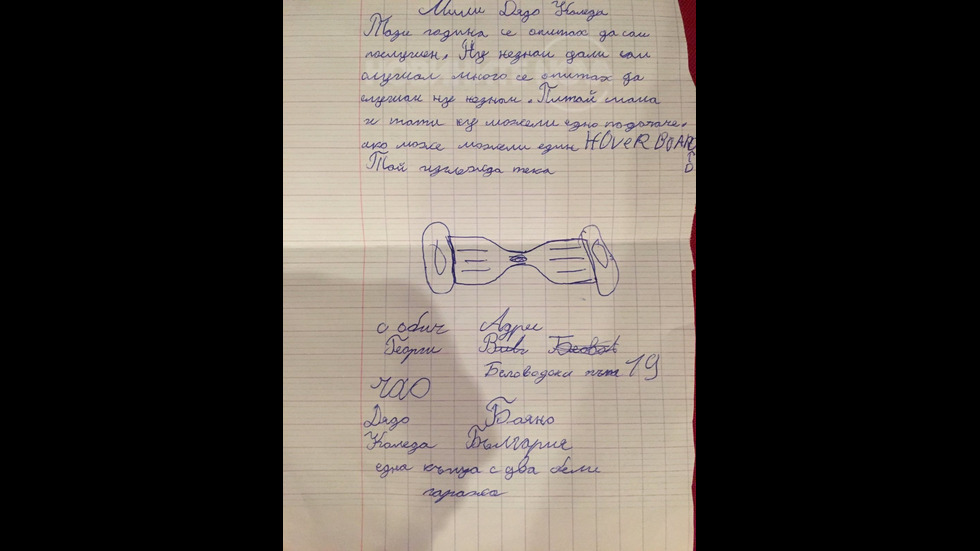 Мили Дядо Коледа
Тази година се опитах да съм
послушен. Ну незнам дали съм
слушал много се опитах да
слушам ну незнам. Питай мама
и тати ку можели едно подараче,
ако можеможели един HOVeRBOARD
Той изглежда тека
с обич
Георги
ЧАО
Дядо
Коледа
Адрес
Беловодски път 19
Бояно
България
една къща с два бели
гаража